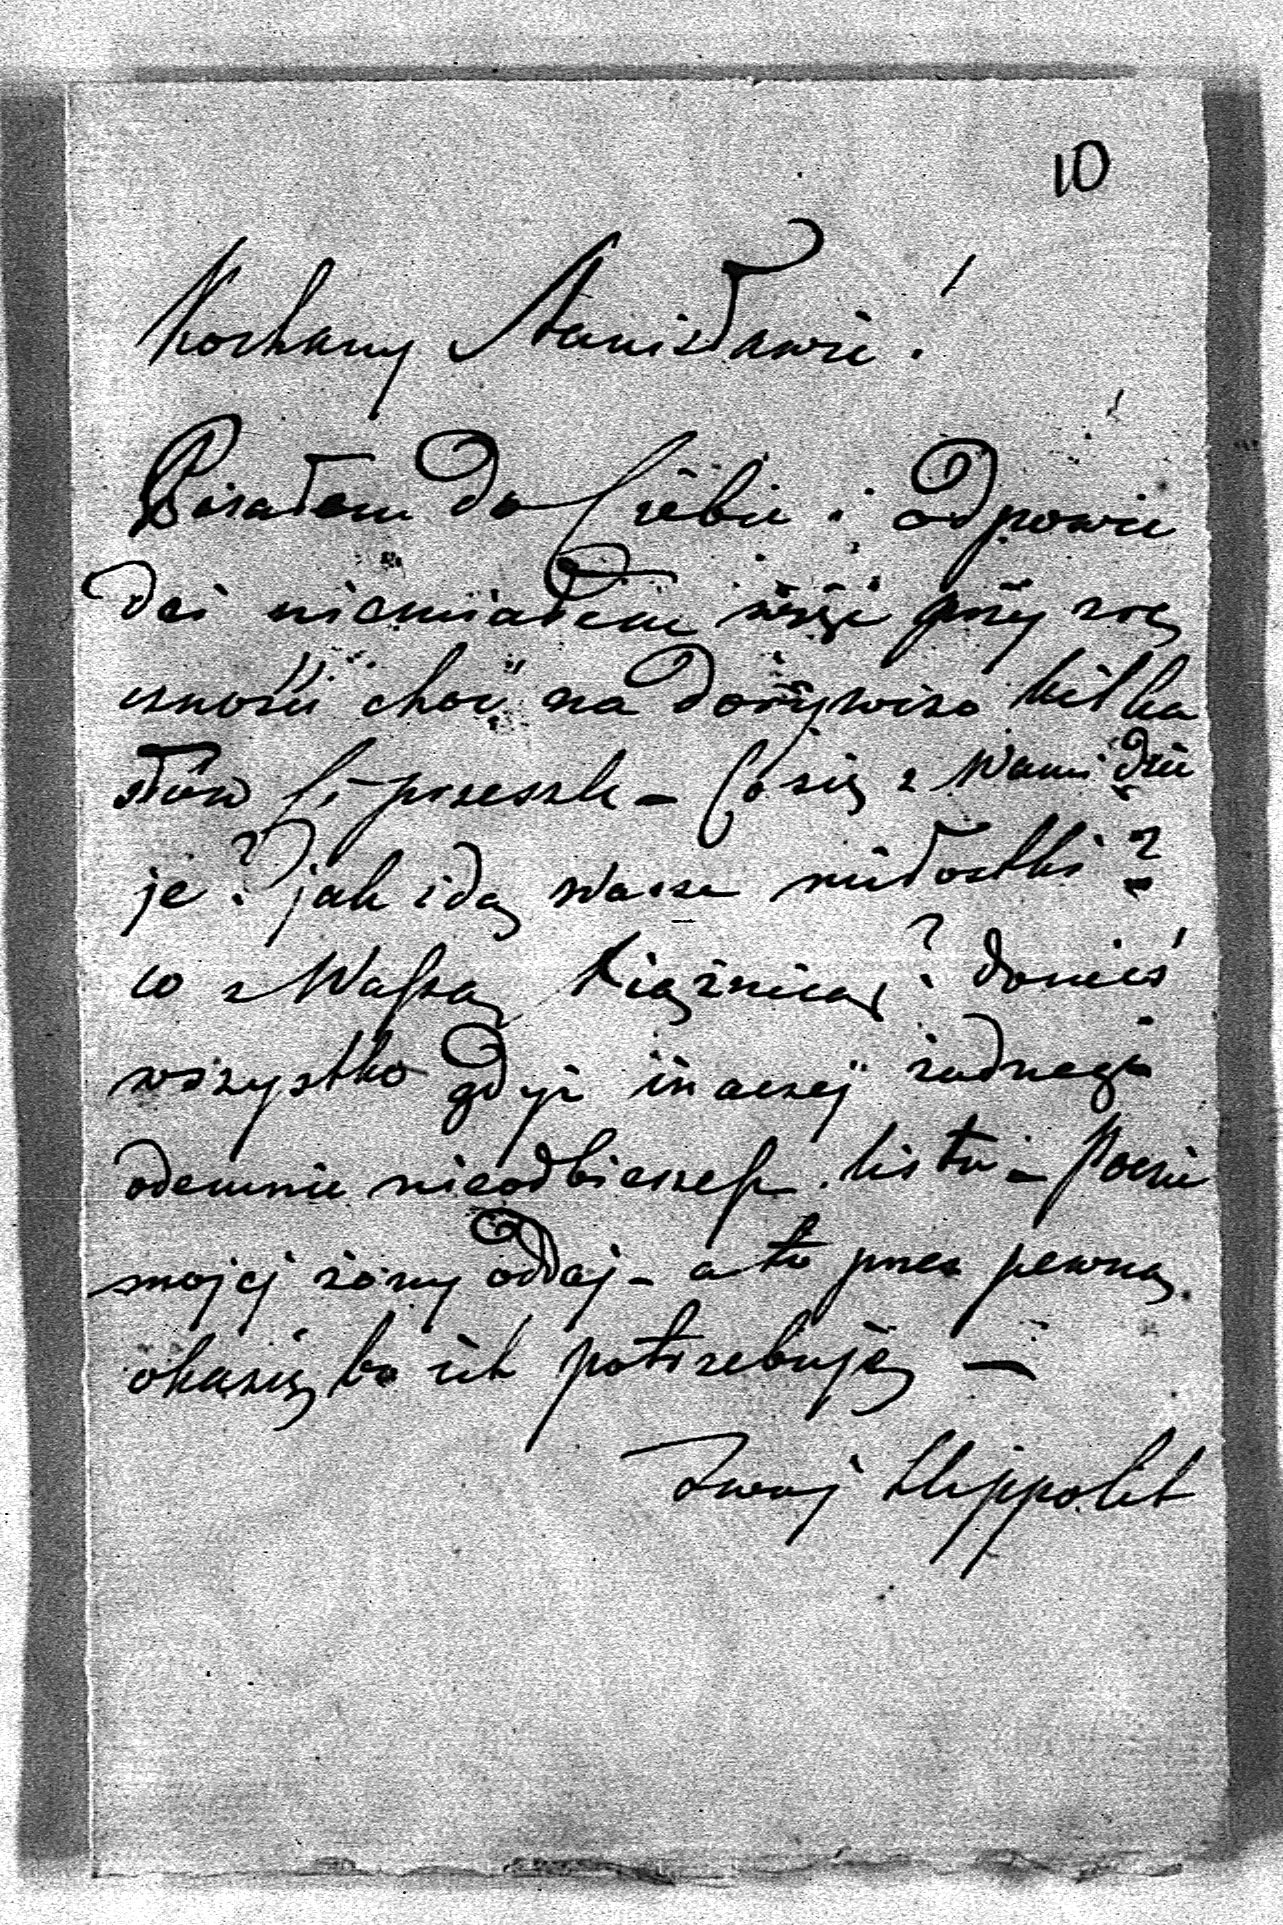 10
Kochany Stanisławie!
Pisałem do Ciebie i odpowie
dzi niemiałem przy zrę
czności choć na dorywiso kilka
słów Ci przeszle – Co się z Wami dzie
je? jak idą Wasze miłostki?
co z Waszą Xiężnicą? donieś
wszystko gdyż inaczej żadnego
odemnie nieodbierzesz listu – Poezie
mojej żony oddaj – a to przez pewną
okazię bo ich potrzebuję –
Twój Hippolit